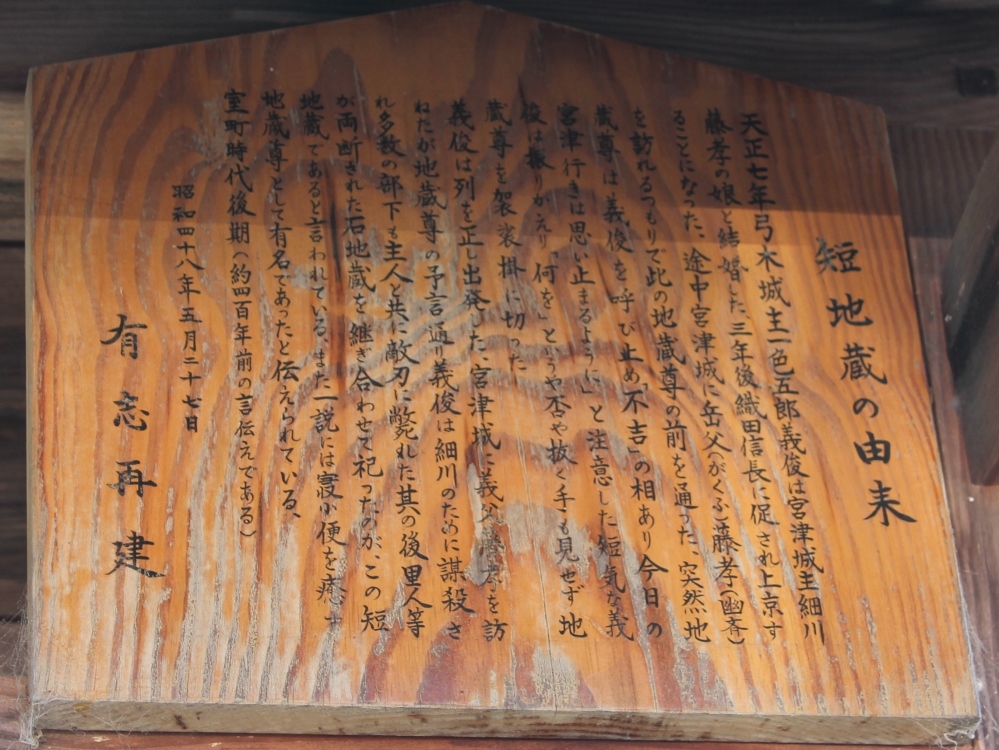 短地蔵の由来
天正七年弓木城主一色五郎義俊は宮津城主細川
藤孝の娘と結婚した、三年後織田信長に促され上京す
ることになった、途中宮津城に岳父(がくふ)藤孝(幽斉)
を訪れるつもりで此の地蔵尊の前を通った、突然地
蔵尊は義俊を呼び止め「不吉」の相あり今日の
宮津行きは思い止まるように」と注意した短気な義
俊は振りかえり「何を」と言うや否や抜く手も見せず地
蔵尊を袈裟掛に切った
義俊は列を正し出発した、宮津城に義父藤孝を訪
ねたが地蔵尊の予言通り義俊は細川のために謀殺さ
れ多数の部下も主人と共に敵刃に斃れた其の後里人等
が両断された石地蔵を継ぎ合わせて祀ったのが、この短
地蔵であると言われている、また一説には寝小便を癒す
地蔵尊として有名であったと伝えられている、
室町時代後期(約四百年前の言伝えである)
昭和四十八年五月二十七日
有志再建